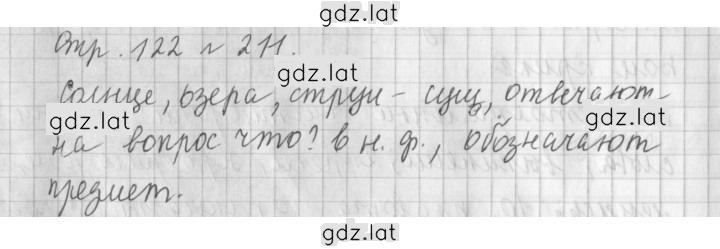 gdz.lat
Стр. 122 № 211.
gdz.lat
Солнце, озера, струи - сущ, отвечают
gdz.lat
gdz.lat
на вопрос что? в н. ф., обозначают
предмет.
gdz.lat